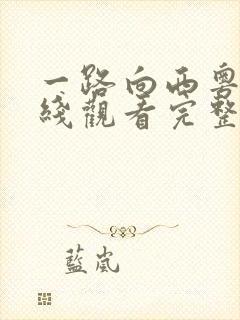 一路向西粤
线觀看完整
藍嵐